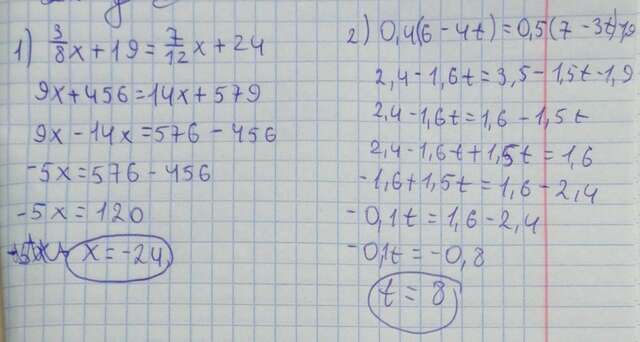 1) 3/8 x + 19 = 7/12 x + 24
9x + 456 = 14x + 579
9x - 14x = 576 - 456
-5x = 576 - 456
-5x = 120
x = -24
2) 0,4(6 - 4t) = 0,5(7 - 3t) - 1,9
2,4 - 1,6t = 3,5 - 1,5t - 1,9
2,4 - 1,6t = 1,6 - 1,5t
2,4 - 1,6t + 1,5t = 1,6
-1,6 + 1,5t = 1,6 - 2,4
-0,1t = 1,6 - 2,4
-0,1t = -0,8
t = 8